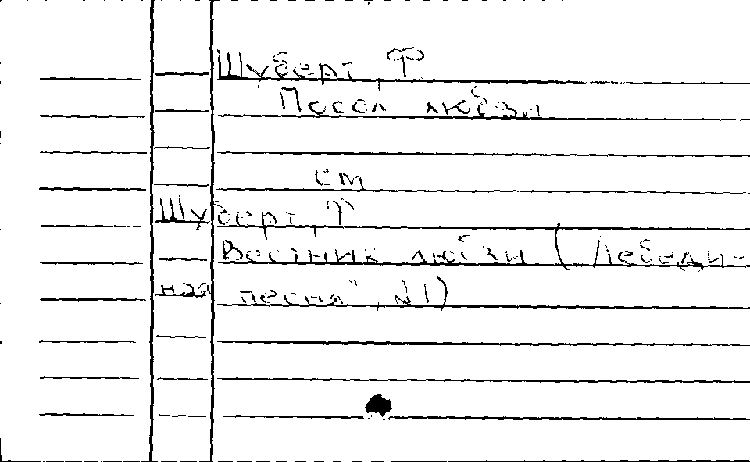 Шуберт, Ф
Посол любви
см
Шуберт, Ф
Вестник любви ( Лебеди-
ная песня", №1)